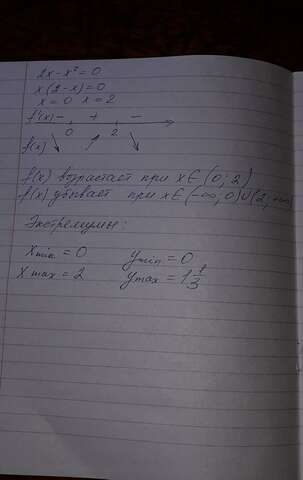 2x - x² = 0
x(2 - x) = 0
x = 0  x = 2
f'(x) - + -
0 2
f(x) ↘ ↗ ↘
f(x) возрастает при x ∈ (0; 2)
f(x) убывает при x ∈ (-∞; 0) ∪ (2; +∞)
Экстремумы:
x min = 0  y min = 0
x max = 2  y max = 1 1/3